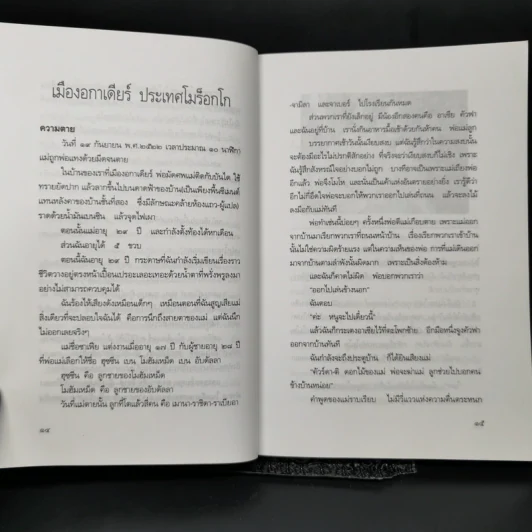 เมืองอกาเดียร์ ประเทศโมร็อกโก
ความตาย
วันที่ ๑๙ กันยายน พ.ศ.๒๕๒๒ เวลาประมาณ ๑๐ นาฬิกา
แม่ถูกพ่อแทงด้วยมีดจนตาย
ในบ้านของเราที่เมืองอกาเดียร์ พ่อมัดคอแม่ติดกับบันได ใช้
ทรายยัดปาก แล้วลากขึ้นไปบนดาดฟ้าของบ้าน(เป็นเพียงพื้นซีเมนต์
แทนหลังคาของบ้านชั้นที่สอง ซึ่งมีลักษณะคล้ายห้องแถว-ผู้แปล)
ราดด้วยน้ำมันเบนซิน แล้วจุดไฟเผา
ตอนนั้นแม่อายุ ๒๙ ปี และกำลังตั้งท้องได้หกเดือน
ส่วนฉันอายุได้ ๕ ขวบ
ตอนนี้ฉันอายุ ๒๙ ปี กระดาษที่ฉันกำลังเขียนเรื่องราว
ชีวิตวางอยู่ตรงหน้าเปื้อนเปรอะเลอะเทอะด้วยน้ำตาที่พรั่งพรูลงมา
อย่างไม่สามารถควบคุมได้
ฉันร้องไห้เสียงดังเหมือนเด็กๆ เหมือนตอนที่ฉันสูญเสียแม่
สิ่งเดียวที่จะปลอบใจฉันได้ คือการนึกถึงสายตาของแม่ แต่ฉันนึก
ไม่ออกเลยจริงๆ
แม่ชื่อซาเฟีย แต่งงานเมื่ออายุ ๑๗ ปี กับผู้ชายอายุ ๒๘ ปี
ที่พ่อแม่เลือกให้ชื่อ ฮุซซีน เบน โมฮัมเหม็ด เบน อับดัลลา
ฮุซซีน คือ ลูกชายของโมฮัมเหม็ด
โมฮัมเหม็ด คือ ลูกชายของอับดัลลา
วันที่แม่ตายนั้น ลูกที่โตแล้วสี่คน คือ เมานา-ราชีดา-ราเบียอา
๑๔
-จามีลา และจาเบอร์ ไปโรงเรียนกันหมด
ส่วนพวกเราที่ยังเล็กอยู่ มีน้องอีกสองคนคือ อาเซีย คัวฟา
และฉันอยู่ที่บ้าน เรานั่งกินอาหารมื้อเช้าด้วยกันห้าคน พ่อแม่ลูก
บรรยากาศเช้าวันนั้นเงียบสงบ แต่ฉันรู้สึกว่าในความสงบนั้น
จะต้องมีอะไรไม่ปรกติสักอย่าง ที่จริงจะว่าเงียบสงบก็ไม่เชิง เพราะ
ฉันรู้สึกสังหรณ์ใจอย่างบอกไม่ถูก บางทีอาจเป็นเพราะแม่เถียงพ่อ
อีกแล้ว พ่อจึงโมโห และนั่นเป็นเค้าแห่งอันตรายอย่างยิ่ง เรารู้ดีว่า
อีกไม่กี่อึดใจพ่อจะบอกให้พวกเราออกไปเล่นที่ถนน แล้วจะลงไม้
ลงมือกับแม่ทันที
พ่อทำเช่นนี้บ่อยๆ ครั้งหนึ่งพ่อตีแม่เกือบตาย เพราะแม่ออก
จากบ้านมาเรียกพวกเราที่ถนนหน้าบ้าน เรื่องเรียกพวกเราเข้าบ้าน
นั้นไม่ใช่ความผิดร้ายแรง แต่ในความเห็นของพ่อ การที่แม่เดินออก
มาจากบ้านตามลำพังนั้นผิดมาก เพราะเป็นสิ่งต้องห้าม
และฉันก็คาดไม่ผิด พ่อบอกพวกเราว่า
"ออกไปเล่นข้างนอก"
ฉันตอบ
"ค่ะ หนูจะไปเดี๋ยวนี้"
แล้วฉันก็กระเตงอาเซียไว้ที่ตะโพกซ้าย อีกมือหนึ่งจูงคัวฟา
ออกจากบ้านทันที
ฉันกำลังจะถึงประตูบ้าน ก็ได้ยินเสียงแม่
"คัวร์ดา-ติ ดอกไม้ของแม่ พ่อจะฆ่าแม่ ลูกช่วยไปบอกคน
ข้างบ้านหน่อย"
คำพูดของแม่ราบเรียบ ไม่มีวี่แววแห่งความตื่นตระหนก
๑๕